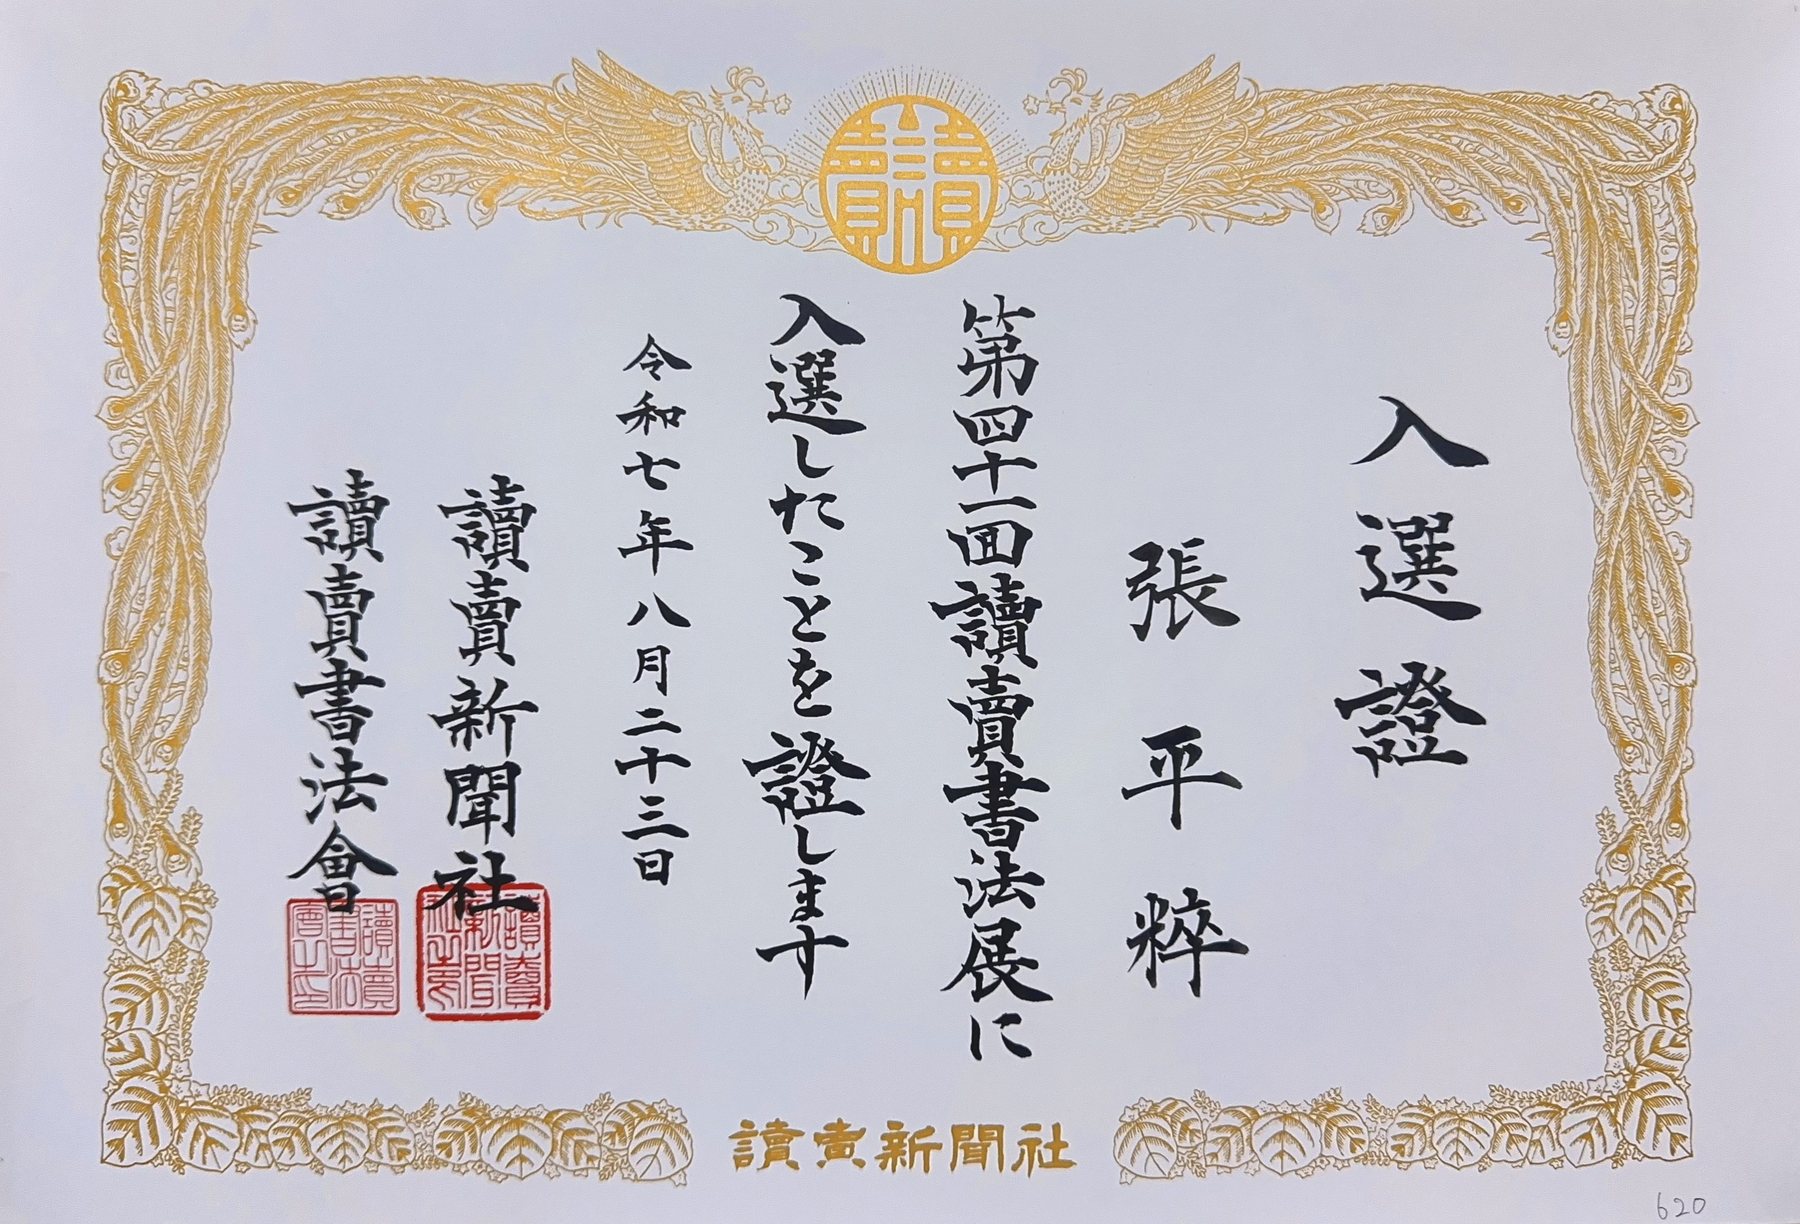 讀賣
入選證
張平粹
第四十一回讀賣書法展に
入選したことを證します
令和七年八月二十三日
讀賣新聞社
讀賣書法會
讀賣新聞社之印
讀賣書法會之印
讀賣新聞社
620